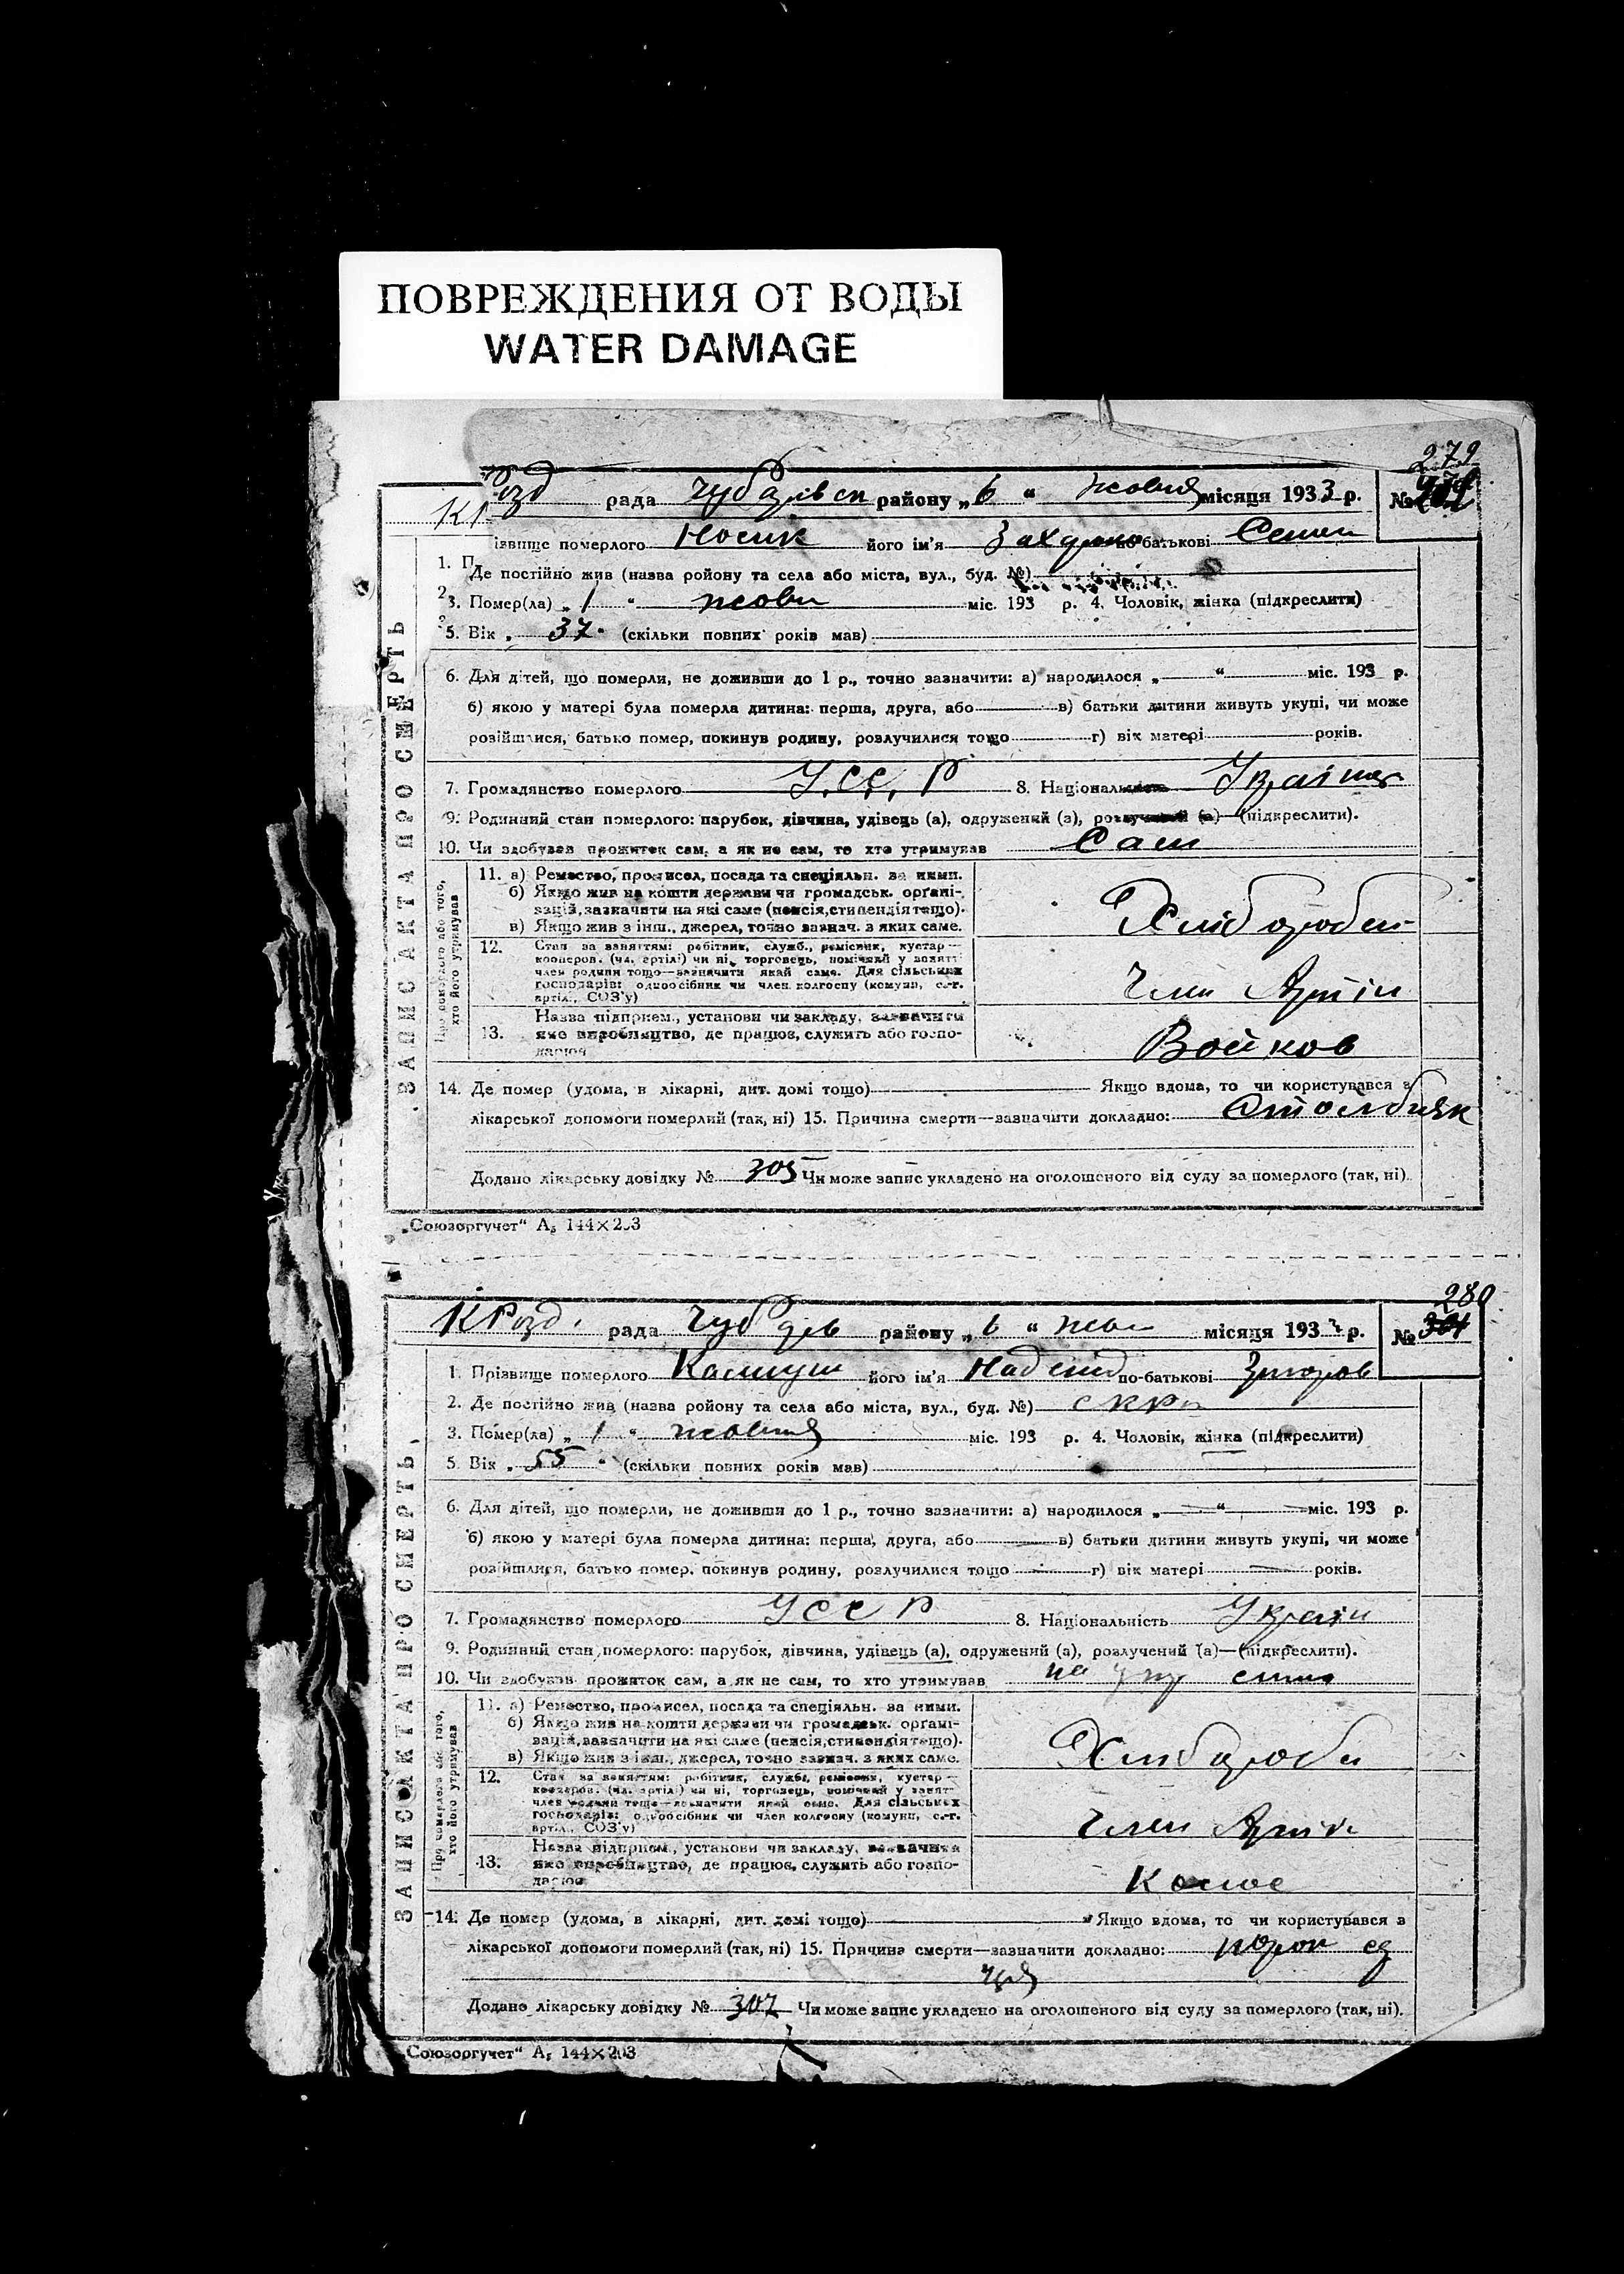 ПОВРЕЖДЕНИЯ ОТ ВОДЫ
WATER DAMAGE
279
рада району „6 “ місяця 1933 р. №
ізвище померлого Носик його ім'я по батькові Семен
1. П
Де постійно жив (назва ройону та села або міста, вул., буд. №)
3. Помер(ла) „ 1 “ жовт міс. 193 р. 4. Чоловік, жінка (підкреслити)
5. Вік „ 37 “ (скільки повних років мав)
6. Для дітей, що померли, не доживши до 1 р., точно зазначити: а) народилося „ “ міс. 193 р.
б) якою у матері була померла дитина: перша, друга, або в) батьки дитини живуть укупі, чи може
розійшлися, батько помер, покинув родину, розлучилися тощо г) вік матері років.
7. Громадянство померлого У.С.С.Р 8. Національність
9. Родинний стан померлого: парубок, дівчина, удівець (а), одружений (а), розлучений (а)—(підкреслити).
10. Чи здобував прожиток сам, а як не сам, то хто утримував Сам
ЗАПИС АКТА ПРО СМЕРТЬ
Про померлого або того, хто його утримував
11. а) Ремество, промисел, посада та спеціяльн. за ними.
б) Якщо жив на кошти держави чи громадськ. органі-
зацій, зазначити на які саме (пенсія, стипендія тощо).
в) Якщо жив з інш., джерел, точно зазнач. з яких саме.
12. Стан за заняттям: робітник, служб., ремісник, кустар—
кооперов. (чл. артілі) чи ні, торговець, помічний у занятт
член родини тощо—зазначити який саме. Для сільських
господарів: одноосібник чи член колгоспу (комуни, с.-г.
артіл., СОЗ'у)
Член Артіл
13. Назва підприєм., установи чи закладу, зазначити
яке виробництво, де працює, служить або госпо-
дарює
Войков
14. Де помер (удома, в лікарні, дит. домі тощо) Якщо вдома, то чи користувався з
лікарської допомоги померлий (так, ні) 15. Причина смерти—зазначити докладно:
Додано лікарську довідку № 305 Чи може запис укладено на оголошеного від суду за померлого (так, ні).
„Союзоргучет“ А₅ 144×203
280
рада району „6 “ місяця 193 р. № 304
1. Прізвище померлого його ім'я по-батькові
2. Де постійно жив (назва ройону та села або міста, вул., буд. №)
3. Помер(ла) „ 1 “ жовтня міс. 193 р. 4. Чоловік, жінка (підкреслити)
5. Вік „ 55 “ (скільки повних років мав)
6. Для дітей, що померли, не доживши до 1 р., точно зазначити: а) народилося „ “ міс. 193 р.
б) якою у матері була померла дитина: перша, друга, або в) батьки дитини живуть укупі, чи може
розійшлися, батько помер, покинув родину, розлучилися тощо г) вік матері років.
7. Громадянство померлого УССР 8. Національність
9. Родинний стан померлого: парубок, дівчина, удівець (а), одружений (а), розлучений (а)—(підкреслити).
10. Чи здобував прожиток сам, а як не сам, то хто утримував
ЗАПИС АКТА ПРО СМЕРТЬ
Про померлого або того, хто його утримував
11. а) Ремество, промисел, посада та спеціяльн. за ними.
б) Якщо жив на кошти держави чи громадськ. органі-
зацій, зазначити на які саме (пенсія, стипендія тощо).
в) Якщо жив з інш., джерел, точно зазнач. з яких саме.
12. Стан за заняттям: робітник, служб., ремісник, кустар—
кооперов. (чл. артілі) чи ні, торговець, помічний у занятт
член родини тощо—зазначити який саме. Для сільських
господарів: одноосібник чи член колгоспу (комуни, с.-г.
артіл., СОЗ'у)
Член Артіл
13. Назва підприєм., установи чи закладу, зазначити
яке виробництво, де працює, служить або госпо-
дарює
14. Де помер (удома, в лікарні, дит. домі тощо) Якщо вдома, то чи користувався з
лікарської допомоги померлий (так, ні) 15. Причина смерти—зазначити докладно: порок
Додано лікарську довідку № 307 Чи може запис укладено на оголошеного від суду за померлого (так, ні).
„Союзоргучет“ А₅ 144×203